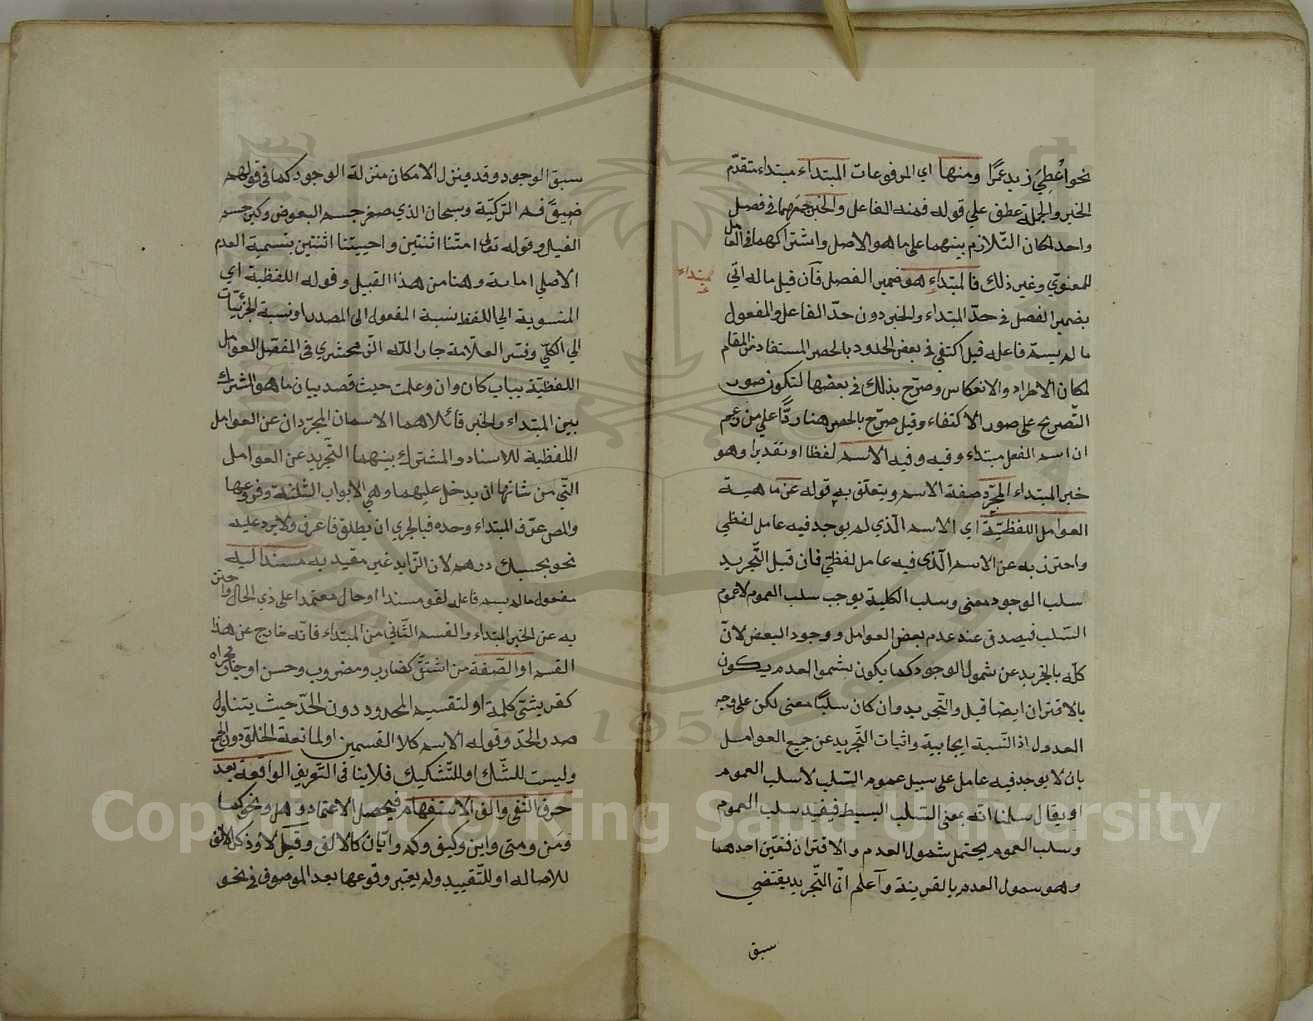 نحو اُعْطِيَ زيد عمرًا ومنها اي المرفوعات المبتداء مبتداء متقدّم
الخبر والجملة عطق علي قوله فمنه الفاعل والخبر جمعهما في فصل
واحد لمكان التلازم بينهما على ما هو الاصل واشتراكهما في العامل
المعنوي وغير ذلك فالمبتداء هو ضمير الفصل فآن قيل ما له اتي
مبتداء
بضمير الفصل في حدّ المبتداء والخبر دون حدّ الفاعل والمفعول
ما لم يسم فاعله قيل اكتفي في بعض الحدود بالحصر المستفاد من المقام
لمكان الاطراد والانعكاس وصرّح بذلك في بعضها لتكون صور
التّصريح على صور الاكتفاء وقيل صرّح بالحصر هنا ردًّا علي من زعم
ان اسم الفعل مبتداء وفيه وفيه الاسم لفظا او تقديرا وهو
خبر المبتداء المجرّد صفة الاسم ويتعلق به قوله عن ماهية
العوامل اللفظيّة اي الاسم الّذي لم يوجد فيه عامل لفظي
واحترز به عن الاسم الّذي فيه عامل لفظيّ فان قيل التّجريد
سلب الوجود معنى وسلب الكلية يوجب سلب العموم لا عموم
السّلب فيصدق عند عدم بعض العوامل ووجود البعض لانّ
كلّه بالتجريد عن شمول الوجود كما يكون بشمول العدم يكون
بالاقتران ايضا قيل والتّجريد وان كان سلبًا معنى لكن على وجه
العدول اذ النّسبة ايجابية واثبات التّجريد عن جميع العوامل
بان لا يوجد فيه عامل على سبيل عموم السّلب لا سلب العموم
او يقال سلنا انّه بمعنى السّلب البسيط فيفيد سلب العموم
وسلب العموم يحتمل شمول العدم والافتران فتعيّن احدهما
وهو شمول العدم بالقرينة وآعلم انّ التّجريد يقتضي
سبق
سبق الوجود وقد ينزل الامكان منزلة الوجود كما في قولهم
ضيق فم الركيّة وسبحان الذي صغر جسم البعوض وكبر جسم
الفيل وقوله تعالى امتّنا اثنتين واحييتنا اثنتين بتسمية العدم
الاصلي اماتة وهنا من هذا القبيل وقوله اللفظية اي
المنسوبة الي اللفظ نسبة المفعول الى المصدر او نسبة الجزئيّات
الي الكلّي وفسّر العلّامة جار اللّه الزّمخشري في المفصّل العوامل
اللفظيّة بباب كان وان وعلمت حيث قصد بيان ما هو المشترك
بين المبتداء والخبر قائلا هما الاسمان المجرّدان عن العوامل
اللفظية للاسناد والمشترك بينهما التّجريد عن العوامل
التّي من شانها ان يدخل عليهما وهي الابواب الثلثة وفروعها
والمص عرّف المبتداء وحده فبالحري ان يطلق فاعرف ولا يرد عليه
نحو بحسبك درهم لان الزّايد غير مقيد به مسندا اليه
مفعول ما لم يسم فاعله لقو مسندا او حال معتمدا على ذي الحال واحترز
به عن الخبر المبتداء والقسم الثّاني من المبتداء فانّه خارج عن هذا
القسم او الصّفة من اشتقّ كضارب ومضروب وحسن او جار مجراه
كقريشيّ كلمة او لتقسيم المحدود دون الحدّ حيث يتناول
صدر الحدّ وقوله الاسم كلا القسمين او لمانعة الخلوّ دون الجمع
وليست للشّك او للتّشكيك فلا ينافي التّعريف الواقعة بعد
حرف النّفي والف الاستفهام فيحصل الاعتماد وهل ونحو كما
ومن ومتى واين وكيف وكم وايّان كالالف وقيل لا وذكر الالف
للاصالة او للتّقييد ولم يعتبر وقوعها بعد الموصوف في نحو
Copyright © King Saud University
1957